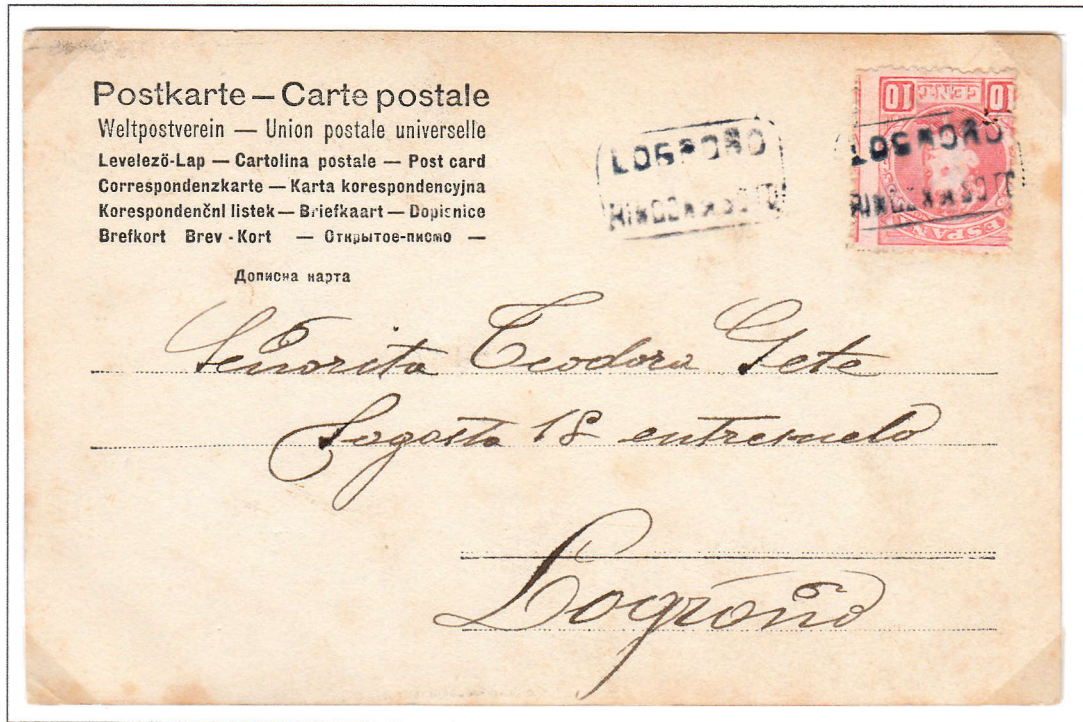 Postkarte — Carte postale
Weltpostverein — Union postale universelle
Levelező-Lap — Cartolina postale — Post card
Correspondenzkarte — Karta korespondencyjna
Korespondenční listek — Briefkaart — Dopisnice
Brefkort Brev-Kort — Открытое-писмо —
Дописна карта
10 CENT 10
ESPAÑA
LOGROÑO
LOGROÑO
Señorita Teodora Gete
Sagasta 18 entresuelo
Logroño